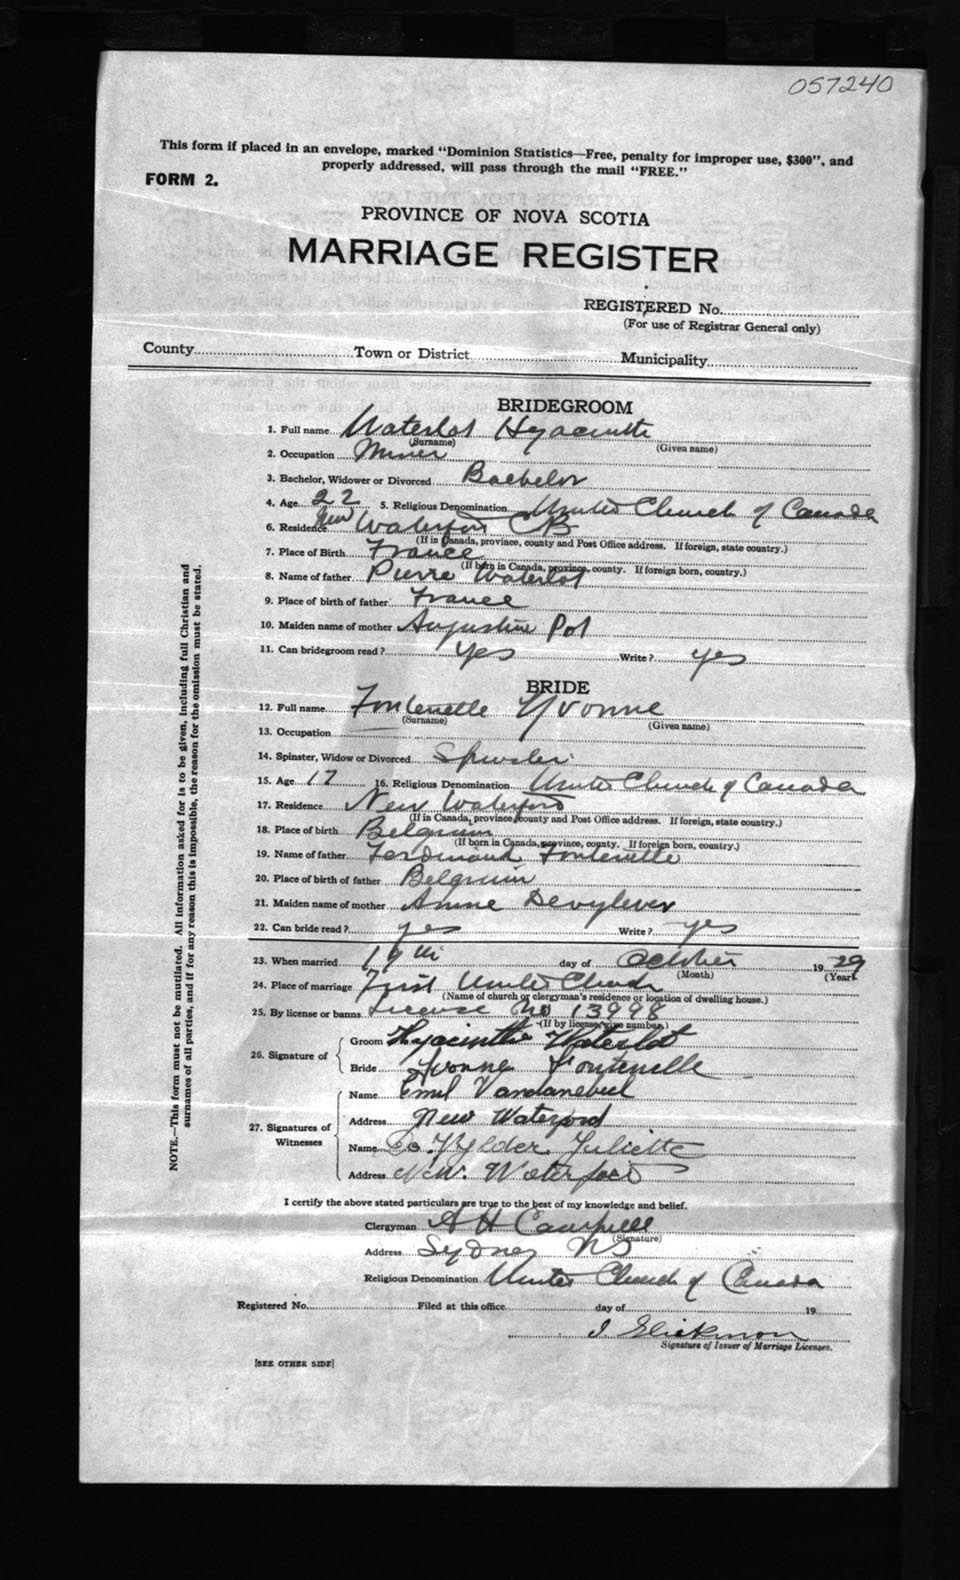 057240
This form if placed in an envelope, marked "Dominion Statistics—Free, penalty for improper use, $300", and
properly addressed, will pass through the mail "FREE."
FORM 2.
PROVINCE OF NOVA SCOTIA
MARRIAGE REGISTER
REGISTERED No.
(For use of Registrar General only)
County Town or District Municipality
BRIDEGROOM
1. Full name Waterlot Hyacinthe
(Surname) (Given name)
2. Occupation Miner
3. Bachelor, Widower or Divorced Bachelor
4. Age 22 5. Religious Denomination United Church of Canada
6. Residence New Waterford CB
(If in Canada, province, county and Post Office address. If foreign, state country.)
7. Place of Birth France
(If born in Canada, province, county. If foreign born, country.)
8. Name of father Pierre Waterlot
9. Place of birth of father France
10. Maiden name of mother Augustine Pot
11. Can bridegroom read? yes Write? yes
BRIDE
12. Full name Fontenelle Yvonne
(Surname) (Given name)
13. Occupation
14. Spinster, Widow or Divorced Spinster
15. Age 17 16. Religious Denomination United Church of Canada
17. Residence New Waterford
(If in Canada, province, county and Post Office address. If foreign, state country.)
18. Place of birth Belgium
(If born in Canada, province, county. If foreign born, country.)
19. Name of father Ferdinand Fontenelle
20. Place of birth of father Belgium
21. Maiden name of mother Devylever
22. Can bride read? yes Write? yes
23. When married day of October 1929
(Month) (Year)
24. Place of marriage First United Church
(Name of church or clergyman's residence or location of dwelling house.)
25. By license or banns License No 13998
(If by license, give number)
26. Signature of Groom Hyacinthe Waterlot
Bride Yvonne Fontenelle
27. Signatures of Witnesses
Name Emil
Address New Waterford
Name Juliette
Address New. Waterford
I certify the above stated particulars are true to the best of my knowledge and belief.
Clergyman A H Campbell
(Signature)
Address Sydney NS
Religious Denomination United Church of Canada
Registered No. Filed at this office day of 19
Signature of Issuer of Marriage Licenses.
[SEE OTHER SIDE]
NOTE.—This form must not be mutilated. All information asked for is to be given, including full Christian and
surnames of all parties, and if for any reason this is impossible, the reason for the omission must be stated.